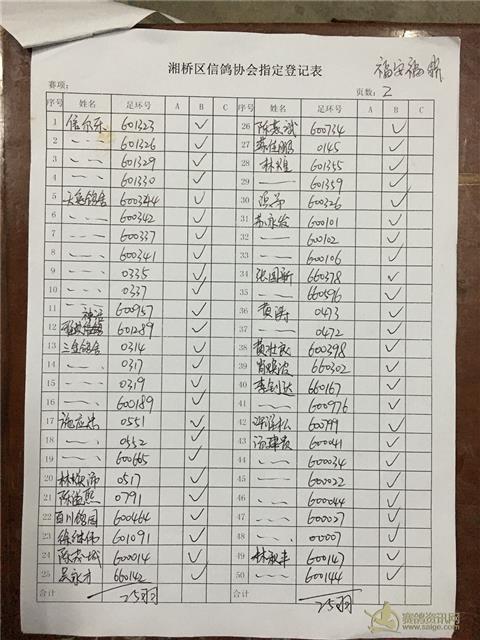 湘桥区信鸽协会指定登记表
福安福鼎
赛项： 页数：2
序号 姓名 足环号 A B C 序号 姓名 足环号 A B C
1 601323 ✓ 26 600734 ✓
2 〃 601326 ✓ 27 0145 ✓
3 〃 601329 ✓ 28 林煌 601355 ✓
4 〃 601330 ✓ 29 〃 601359 ✓
5 600344 ✓ 30 600326 ✓
6 〃 600342 ✓ 31 苏永发 600101 ✓
7 〃 600337 ✓ 32 〃 600102 ✓
8 〃 600341 ✓ 33 〃 600106 ✓
9 〃 0335 ✓ 34 张国新 660378 ✓
10 〃 0337 ✓ 35 〃 660596 ✓
11 〃 600957 ✓ 36 0473 ✓
12 601289 ✓ 37 〃 0472 ✓
13 0314 ✓ 38 黄壮良 600398 ✓
14 〃 0317 ✓ 39 660302 ✓
15 〃 0319 ✓ 40 李钊达 660167 ✓
16 〃 600189 ✓ 41 〃 600976 ✓
17 0551 ✓ 42 600799 ✓
18 〃 0552 ✓ 43 600041 ✓
19 〃 600665 ✓ 44 〃 600034 ✓
20 0517 ✓ 45 〃 600022 ✓
21 0791 ✓ 46 〃 600044 ✓
22 600464 ✓ 47 〃 600027 ✓
23 徐继伟 601091 ✓ 48 〃 00007 ✓
24 600014 ✓ 49 600147 ✓
25 吴永才 660142 ✓ 50 〃 600144 ✓
合计 25羽 合计 25羽
赛鸽资讯网
www.saige.com